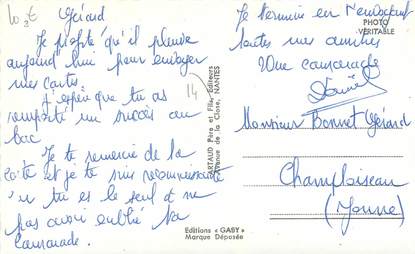 10 2€
Gérard
Je profite qu'il pleuve
aujourd'hui pour envoyer
mes cartes.
J'espère que tu as
remporté un succès au
bac
Je te remercie de la
carte et je te suis reconnaissante
tu es le seul à ne
pas avoir oublié ta
camarade.
14
ARTAUD Père et Fils, Editeurs
Avenue de la Close, NANTES
Editions « GABY »
Marque Déposée
PHOTO
VERITABLE
Je termine en t'envoyant
toutes mes amitiés
Une camarade
Monsieur Bonnet Gérard
Champloiseau
(Yonne)